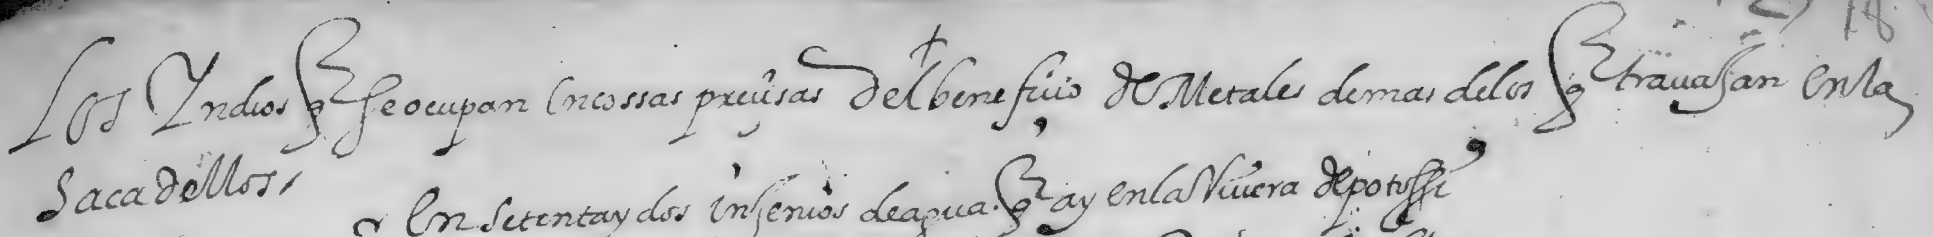 18
Los Yndios q̃ se ocupan en cossas preçisas del benefiçio de Metales demas de los q̃ travajan en la
Saca dellos,
En setenta y dos injenios de agua q̃ ay en la Rivera de potossi